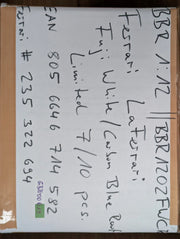 BBR 1:12 BBR1202FWCR
Ferrari LaFerrari
Fuji White/Carbon Blue Roof
Limited 7/10 pcs.
EAN 805 6646 714 582
Ferrari # 235 322 694